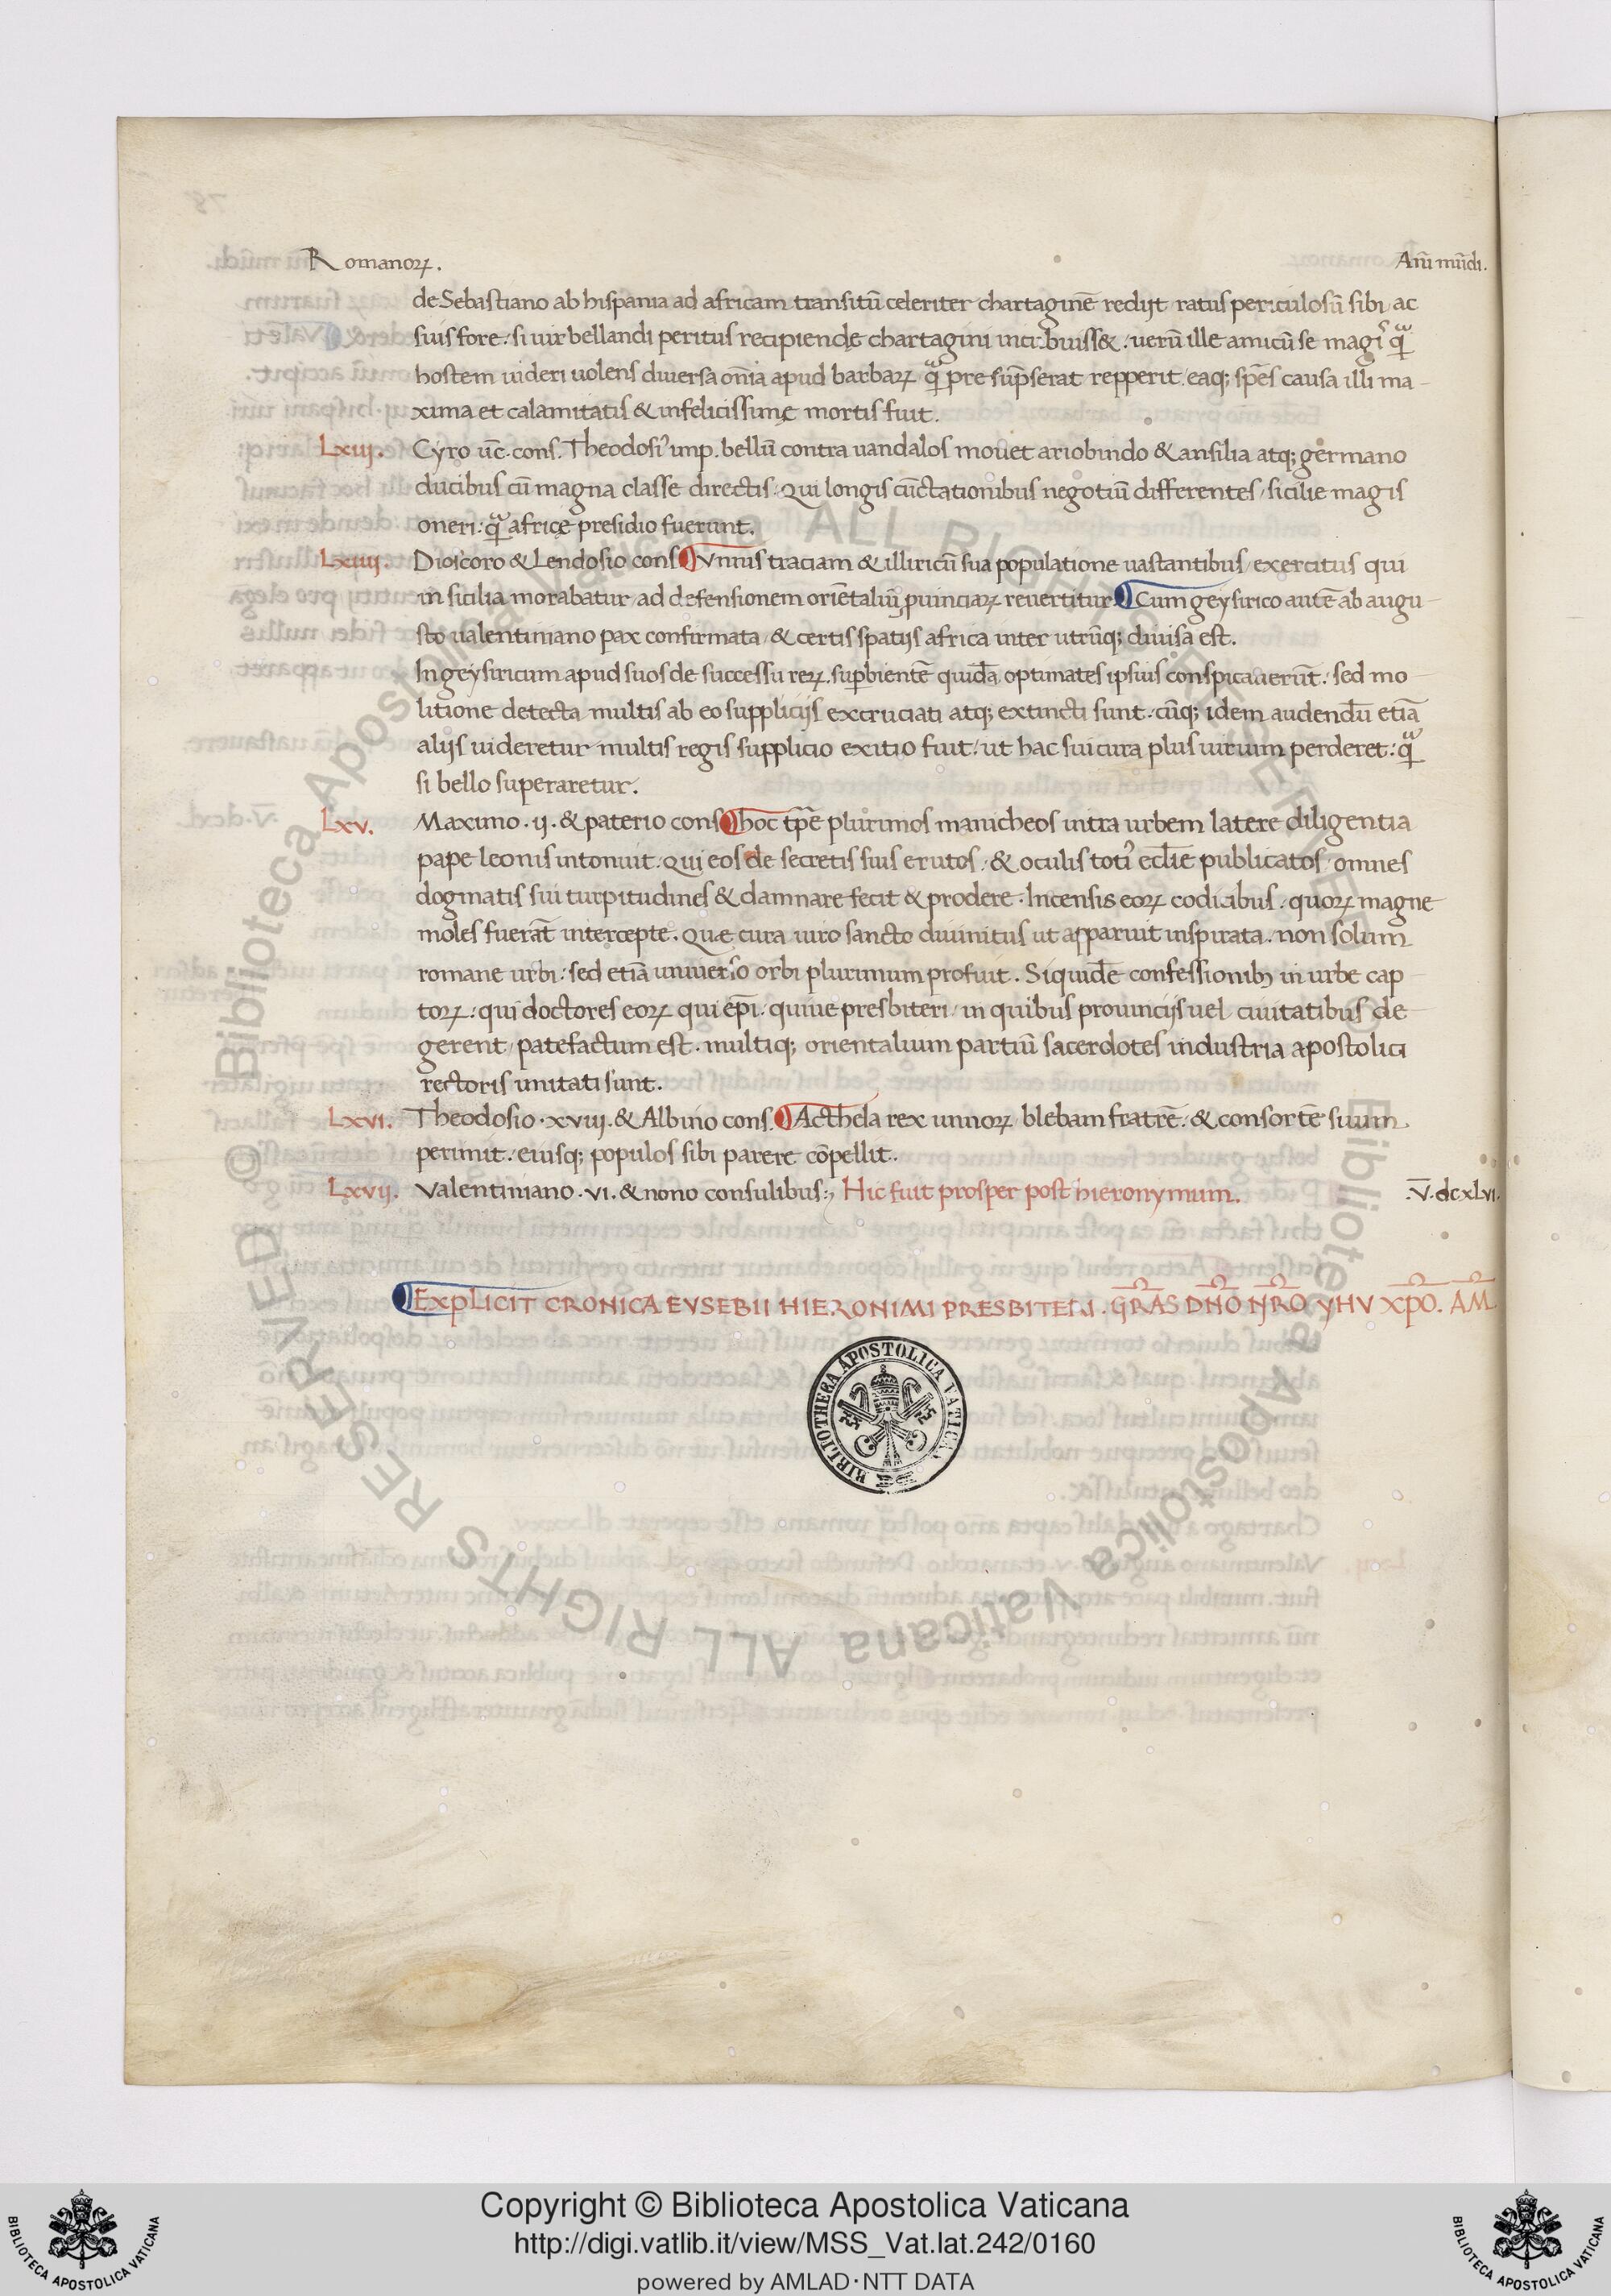 Romanoꝝ.
Anñ mũdi.
de Sebastiano ab hispania ad africam transitũ celeriter chartaginẽ redijt ratus periculosũ sibi ac
suis fore: si uir bellandi peritus recipiende chartagini incubuiss&: uerũ ille amicũ se magꝭ qᷓ
hostem uideri uolens diuersa om̃ia apud barbaroꝝ qᷓ presup̃serat repperit. eaq; sp̃es causa illi ma-
xima et calamitatis & infelicissimę mortis fuit.
Lxiij. Cyro uc̃. cons. Theodosiꝰ imp. bellũ contra uandalos mouet ariobindo & ansilia atq; germano
ducibus cũ magna classe directis. Qui longis cũctationibus negotiũ differentes / sicilie magis
oneri: qᷓ africę presidio fuerunt.
Lxiiij. Dioscoro & Lendosio cons. Vnnis traciam & illiricũ sua populatione uastantibus / exercitus qui
in sicilia morabatur / ad defensionem oriẽtaliũ ꝓuinciaꝝ reuertitur. Cum geysirico autẽ ab augu-
sto ualentiniano pax confirmata / & certis spatijs africa inter utrũq; diuisa est.
In geysiricum apud suos de successu reꝝ. suꝑbientẽ quidã optimates ipsius conspicauerũt: sed mo-
litione detecta multis ab eo supplicijs excruciati atq; extincti sunt: cũq; idem audendũ etiã
alijs uideretur multis regis supplicio exitio fuit: ut hac sui cura plus uirium perderet: qᷓ
si bello superaretur.
Lxv. Maximo .ij. & paterio cons. hoc tp̃e plurimos manicheos intra urbem latere diligentia
pape leonis intonuit: qui eos de secretis suis erutos: & oculis totiꝰ eccl̃ie publicatos / omnes
dogmatis sui turpitudines & damnare fecit & prodere. Incensis eoꝝ codicibus: quoꝝ magne
moles fuerãt intercepte. Quæ cura uiro sancto diuinitus ut apparuit inspirata. non solum
romane urbi: sed etiã uniuerso orbi plurimum profuit. Siquidẽ confessionibꝫ in urbe cap-
toꝝ: qui doctores eoꝝ qui ep̃i: quiue presbiteri / in quibus prouincijs uel ciuitatibus de-
gerent / patefactum est. multiq; orientalium partiũ sacerdotes industria apostolici
rectoris imitati sunt.
Lxvi. Theodosio .xviij. & Albino cons. Acthela rex unnoꝝ blebam fratrẽ: & consortẽ suum
perimit: eiusq; populos sibi parere cõpellit.
Lxvij. Valentiniano .vi. & nono consulibus:, Hic fuit prosper post hieronymum. .V̅.dcxLvi.
EXPLICIT CRONICA EVSEBII HIERONIMI PRESBITERI. GR̃AS DÑO NR̃O YHV XP̃O. AM̃.
BIBLIOTHECA APOSTOLICA VATICANA
© Biblioteca Apostolica Vaticana ALL RIGHTS RESERVED © Biblioteca Apostolica Vaticana ALL RIGHTS RESERVED
Copyright © Biblioteca Apostolica Vaticana
http://digi.vatlib.it/view/MSS_Vat.lat.242/0160
powered by AMLAD·NTT DATA
BIBLIOTECA APOSTOLICA VATICANA
BIBLIOTECA APOSTOLICA VATICANA